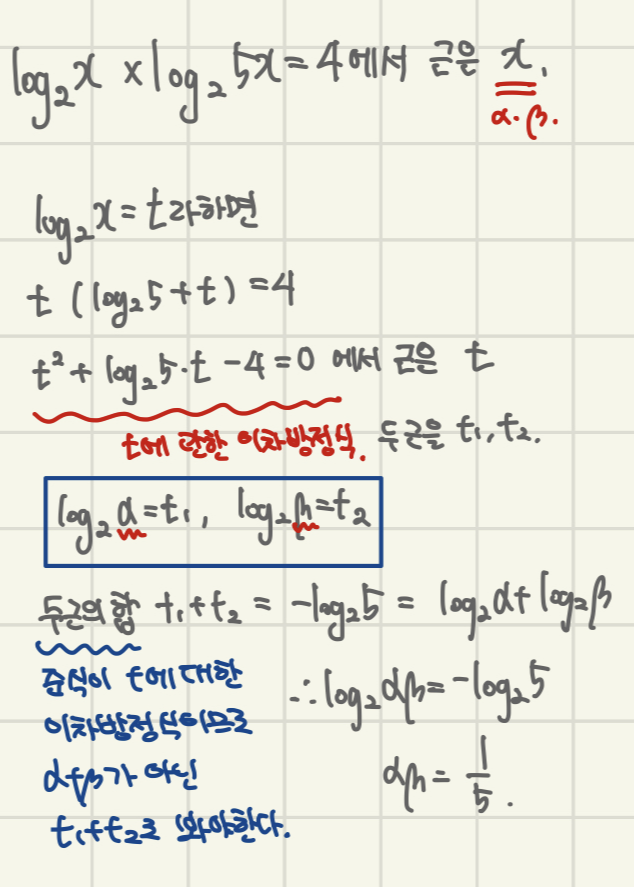 log₂x × log₂5x = 4 에서 근은 x.
α. β.
log₂x = t라하면
t (log₂5 + t) = 4
t² + log₂5·t - 4 = 0 에서 근은 t
t에 관한 이차방정식. 두근을 t₁, t₂.
log₂α = t₁, log₂β = t₂
두근의 합 t₁+t₂ = -log₂5 = log₂α + log₂β
준식이 t에 대한
이차방정식이므로
α+β가 아닌
t₁+t₂로 봐야한다.
∴ log₂αβ = -log₂5
αβ = 1/5.